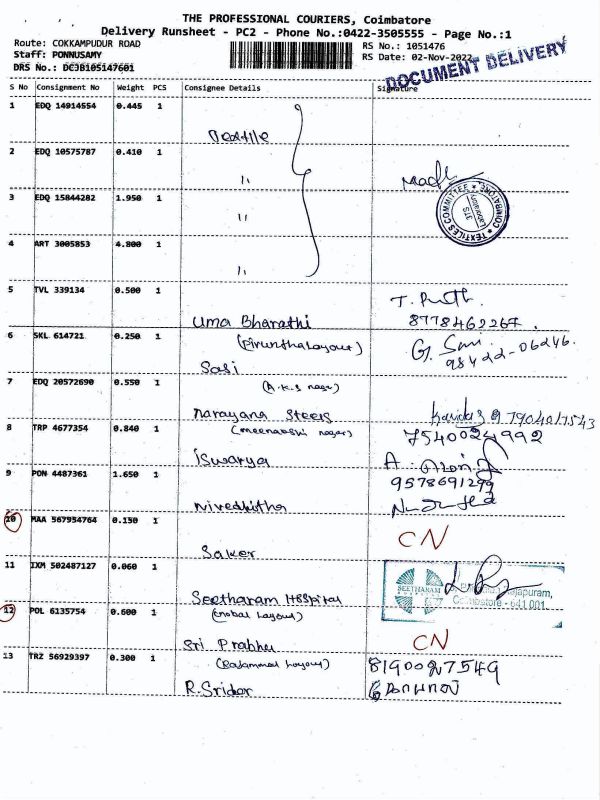 THE PROFESSIONAL COURIERS, Coimbatore
Delivery Runsheet - PC2 - Phone No.:0422-3505555 - Page No.:1
Route: COKKAMPUDUR ROAD
RS No.: 1051476
Staff: PONNUSAMY
RS Date: 02-Nov-2022
DRS No.: DCJB105147601
DOCUMENT DELIVERY
S No Consignment No Weight PCS Consignee Details Signature
1 EDQ 14914554 0.445 1
Textile
2 EDQ 10575787 0.410 1
"
3 EDQ 15844282 1.950 1
"
TEXTILES COMMITTEE
LABORATORY
COIMBATORE
4 ART 3005853 4.800 1
"
5 TVL 339134 0.500 1
Uma Bharathi
8778462267
6 SKL 614721 0.250 1
Sasi
98422-06246
7 EDQ 20572690 0.550 1
(A.K.S nagar)
Narayana Steels
7904017543
8 TRP 4677354 0.840 1
(meenakshi nagar)
7540024992
Iswarya
9 PON 4487361 1.650 1
9578691299
Nivedhitha
10 MAA 567954764 0.150 1
CN
Saker
11 IXM 502487127 0.060 1
Seetharam Hospital
SEETHARAM
Coimbatore - 641 001
12 POL 6135754 0.600 1
Sri Prabhu
CN
13 TRZ 56929397 0.300 1
8190027549
R.Sridar